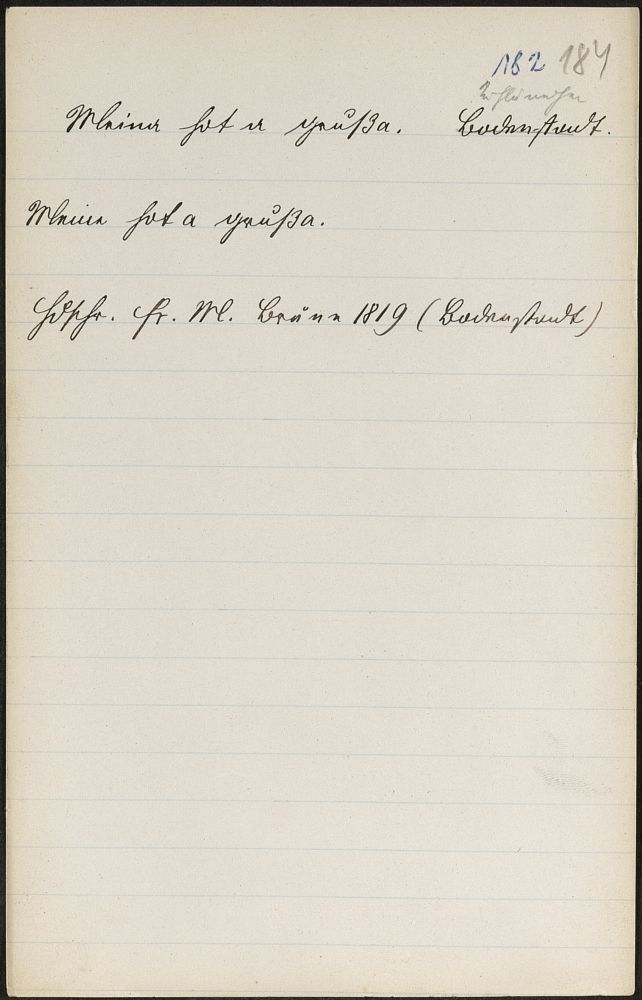 182 184
Meina hot a grußa. Bodenstadt.
Meine hot a grußa.
Hdschr. Fr. M. Bräun 1819 (Bodenstadt)